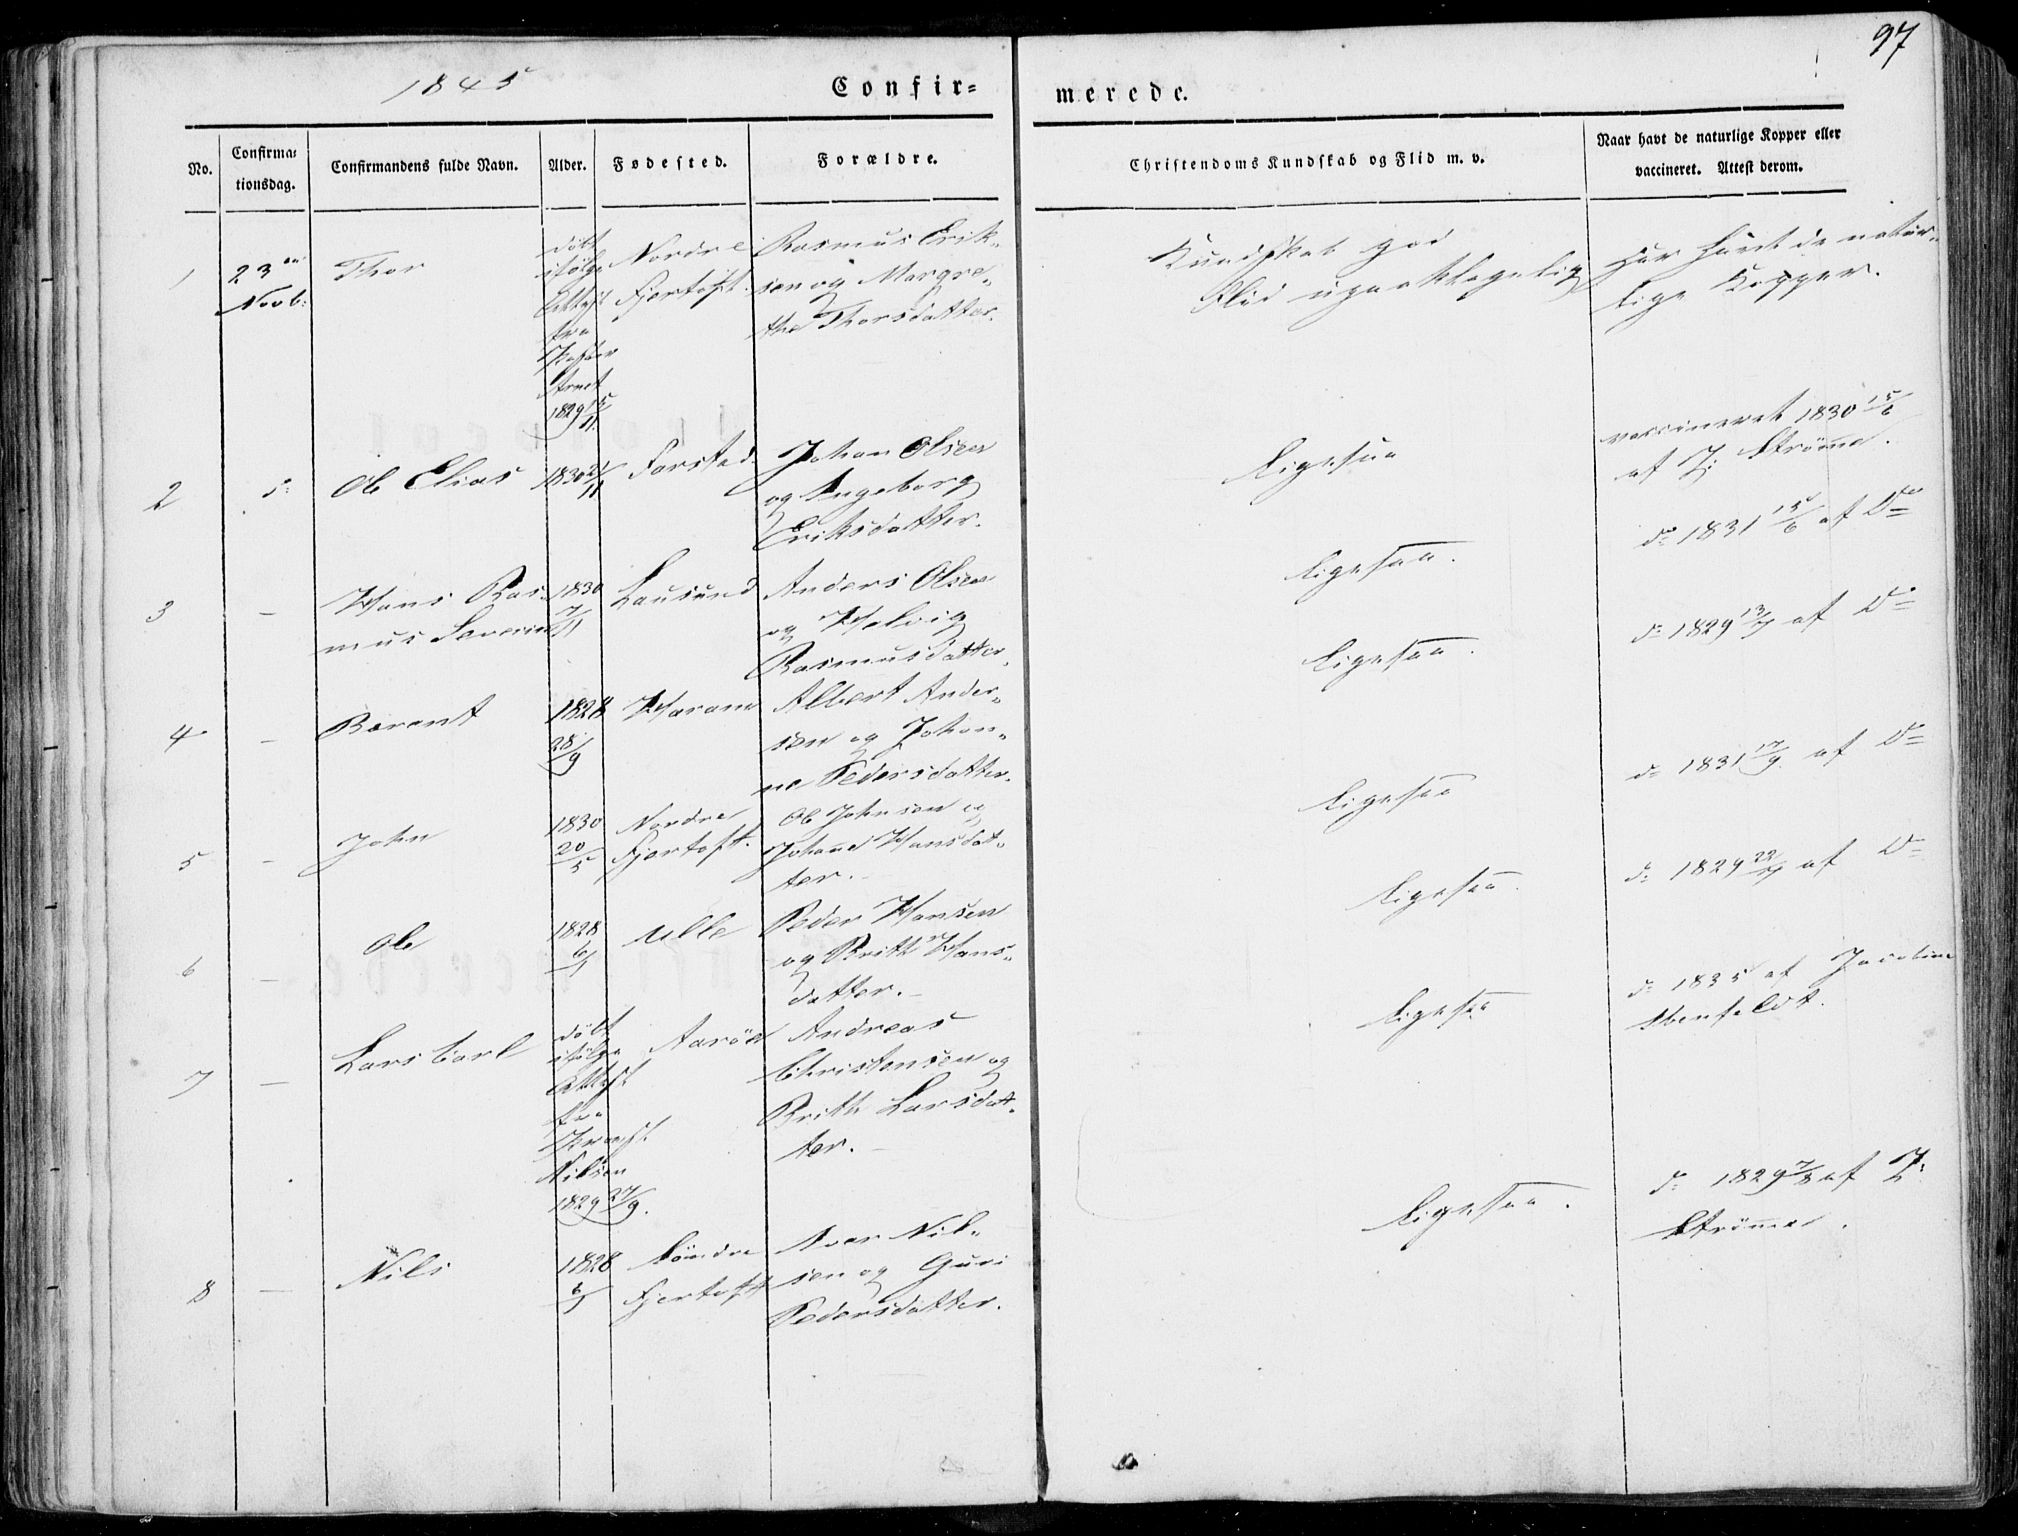 97
1845
Confir=
merede.
No.
Confirma=
tionsdag.
Confirmandens fulde Navn.
Alder.
Fødested.
Forældre.
Christendoms Kundskab og Flid m. v.
Naar havt de naturlige Kopper eller
vaccineret. Attest derom.
1
23
Novb:
Thor
døbt
ifølge
Attest
fra
1829 15/11.
Nordre
Fjertoft.
Rasmus Erik-
sen og Margre-
the Thorsdatter.
Kundskab god
Flid upaaklagelig
Har havt de natur-
lige Kopper.
2
d:
Ole Elias
1830 21/11
Farstad
Johan Olsen
og Ingeborg
Eriksdatter.
Ligesaa
vaccineret 1830 15/6
af Strømme.
3
-
Hans Ras-
mus Severin
1830
7/11
Lausund
Anders Olsen
og Helvig
Rasmusdatter.
Ligesaa.
d: 1831 15/6 af Do
4
-
Berent
1828
28/9
Haram
Albert Ander-
sen og Johan-
ne Pedersdatter.
Ligesaa.
d: 1829 13/7 af Do
5
-
John
1830
20/5
Nordre
Fjertoft.
Ole Johnsen og
Johanne Hansdat-
ter.
Ligesaa
d: 1831 17/9 af Do
6
-
Ole
1828
6/1
Ulle
Peder Hansen
og Brith Hans-
datter.
Ligesaa.
d: 1829 22/7 af Do
7
-
Lars Carl
døbt
ifølge
Attest
fra
Nilsen
1829 27/9.
Aarøe
Andreas
Christensen og
Brith Larsdat-
ter.
Ligesaa
d: 1835 af Jacobine
Ebenfeldt.
8
-
Nils
1828
6/1
Søndre
Fjertoft
Iver Nil-
sen og Guri
Pedersdatter.
Ligesaa.
d: 1829 7/8 af
Strømme.